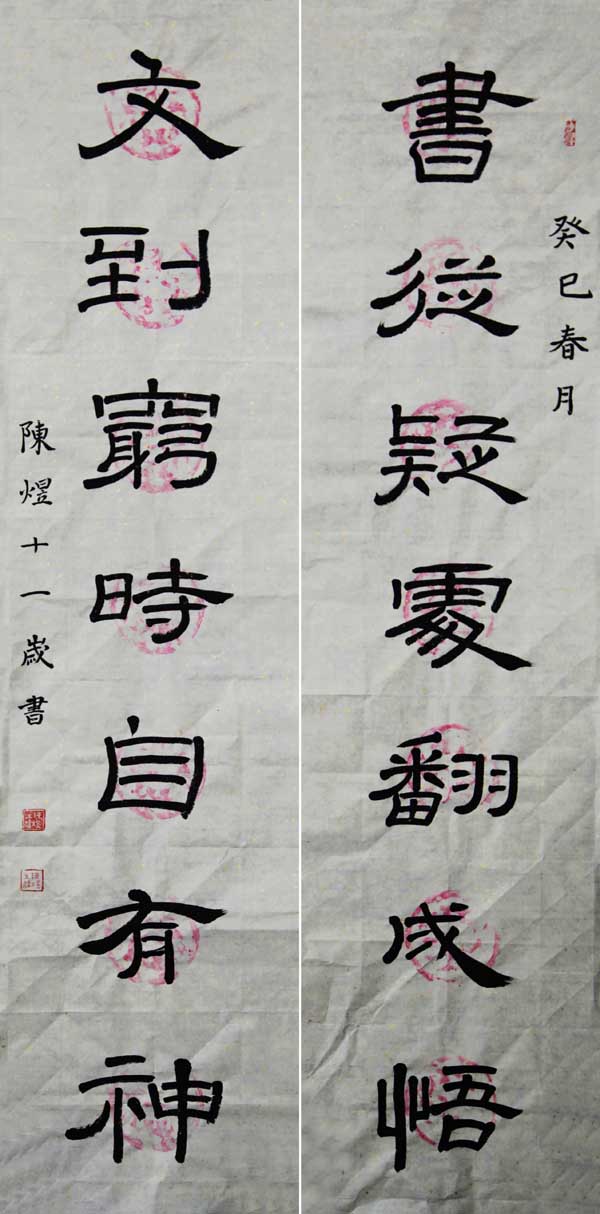 癸巳春月
書從疑處翻成悟
文到窮時自有神
陳煜十一歲書